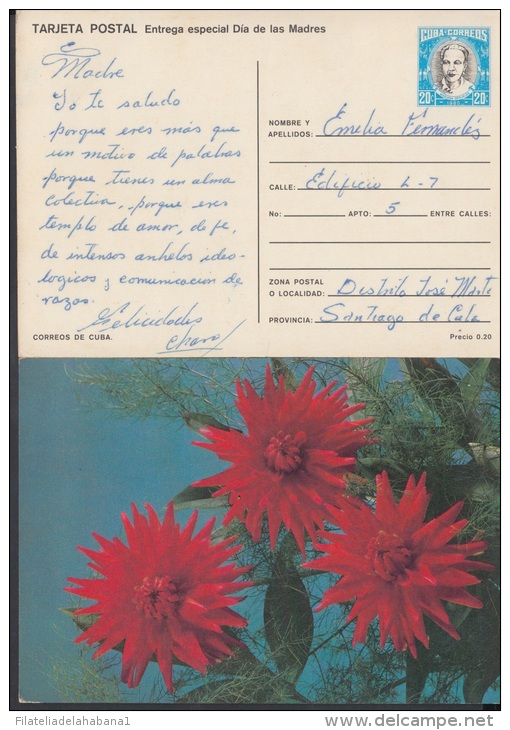 TARJETA POSTAL Entrega especial Día de las Madres
CUBA·CORREOS
20¢ 20¢
Madre
Yo te saludo
porque eres más que
un motivo de palabras
porque tienes un alma
colectiva, porque eres
templo de amor, de fe,
de intensos anhelos ideo-
logicos y comunicacion de
razas.
Felicidades
CORREOS DE CUBA.
NOMBRE Y
APELLIDOS: Emelia Fernandés
CALLE: Edificio L-7
No: APTO: 5 ENTRE CALLES:
ZONA POSTAL
O LOCALIDAD: Distrito José Martí
PROVINCIA: Santiago de Cuba
Precio 0.20
Filateliadelahabana1
www.delcampe.net